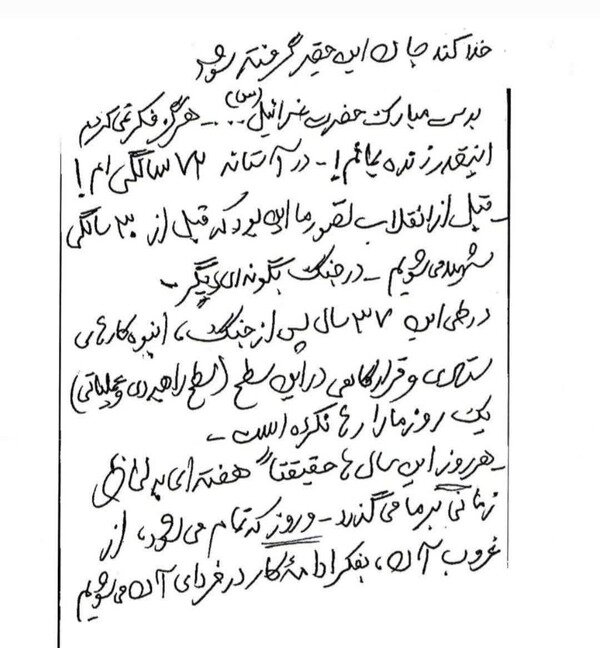 خدا کند جان این حقیر گرفته شود
بدست مبارک حضرت عزرائیل (س)... هرگز فکر نمی‌کردم
اینقدر زنده بمانم! - در آستانه ۷۳ سالگی ام!
- قبل از انقلاب تصور ما این بود که قبل از ۳۰ سالگی
شهید می‌شویم - در جنگ بگونه‌ای دیگر -
در طی این ۳۷ سال پس از جنگ، انبوه کارهای
ستادی و قرارگاهی در این سطح (سطح راهبردی و عملیاتی)
یک روز ما را رها نکرده است -
- هر روز این سال ها حقیقتاً هفته‌ای به لحاظ
زمانی بر ما می‌گذرد - و روز که تمام می‌شود، از
غروب آن، بفکر ادامهٔ کار در فردای آن می‌شویم